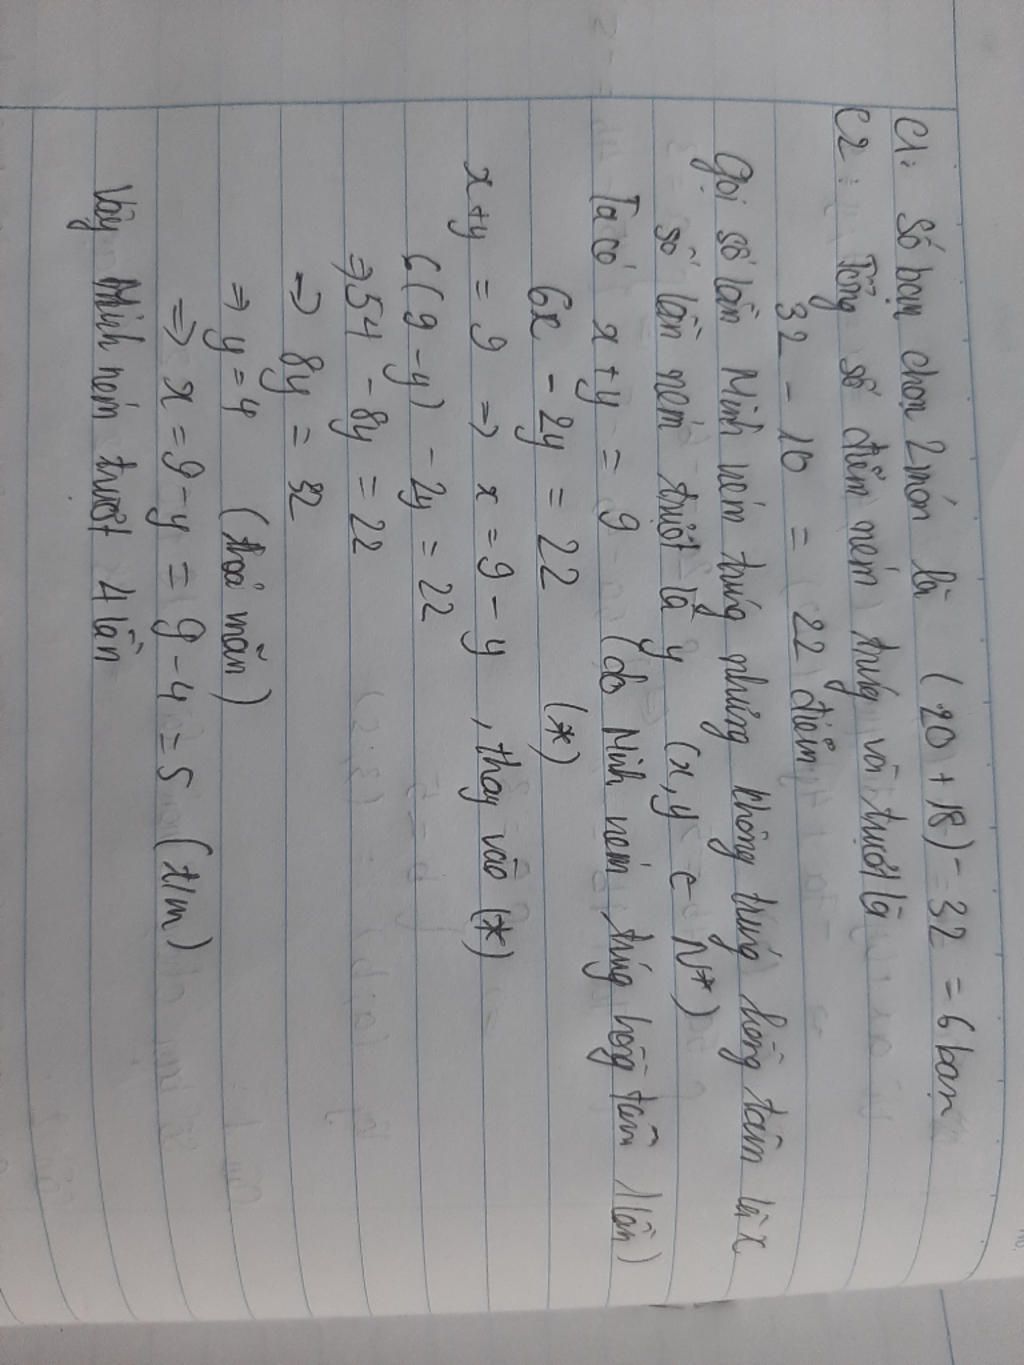 C1: Số bạn chọn 2 món là (20 + 18) - 32 = 6 bạn
C2: Tổng số điểm ném trúng và trượt là
32 - 10 = 22 điểm
Gọi số lần Minh ném trúng nhưng không trúng hồng tâm là x
số lần ném trượt là y (x, y ∈ N*)
Ta có x + y = 9 (do Minh ném trúng hồng tâm 1 lần)
6x - 2y = 22 (*)
x + y = 9 => x = 9 - y, thay vào (*)
6(9 - y) - 2y = 22
=> 54 - 8y = 22
=> 8y = 32
=> y = 4 (thoả mãn)
=> x = 9 - y = 9 - 4 = 5 (t/m)
Vậy Minh ném trượt 4 lần